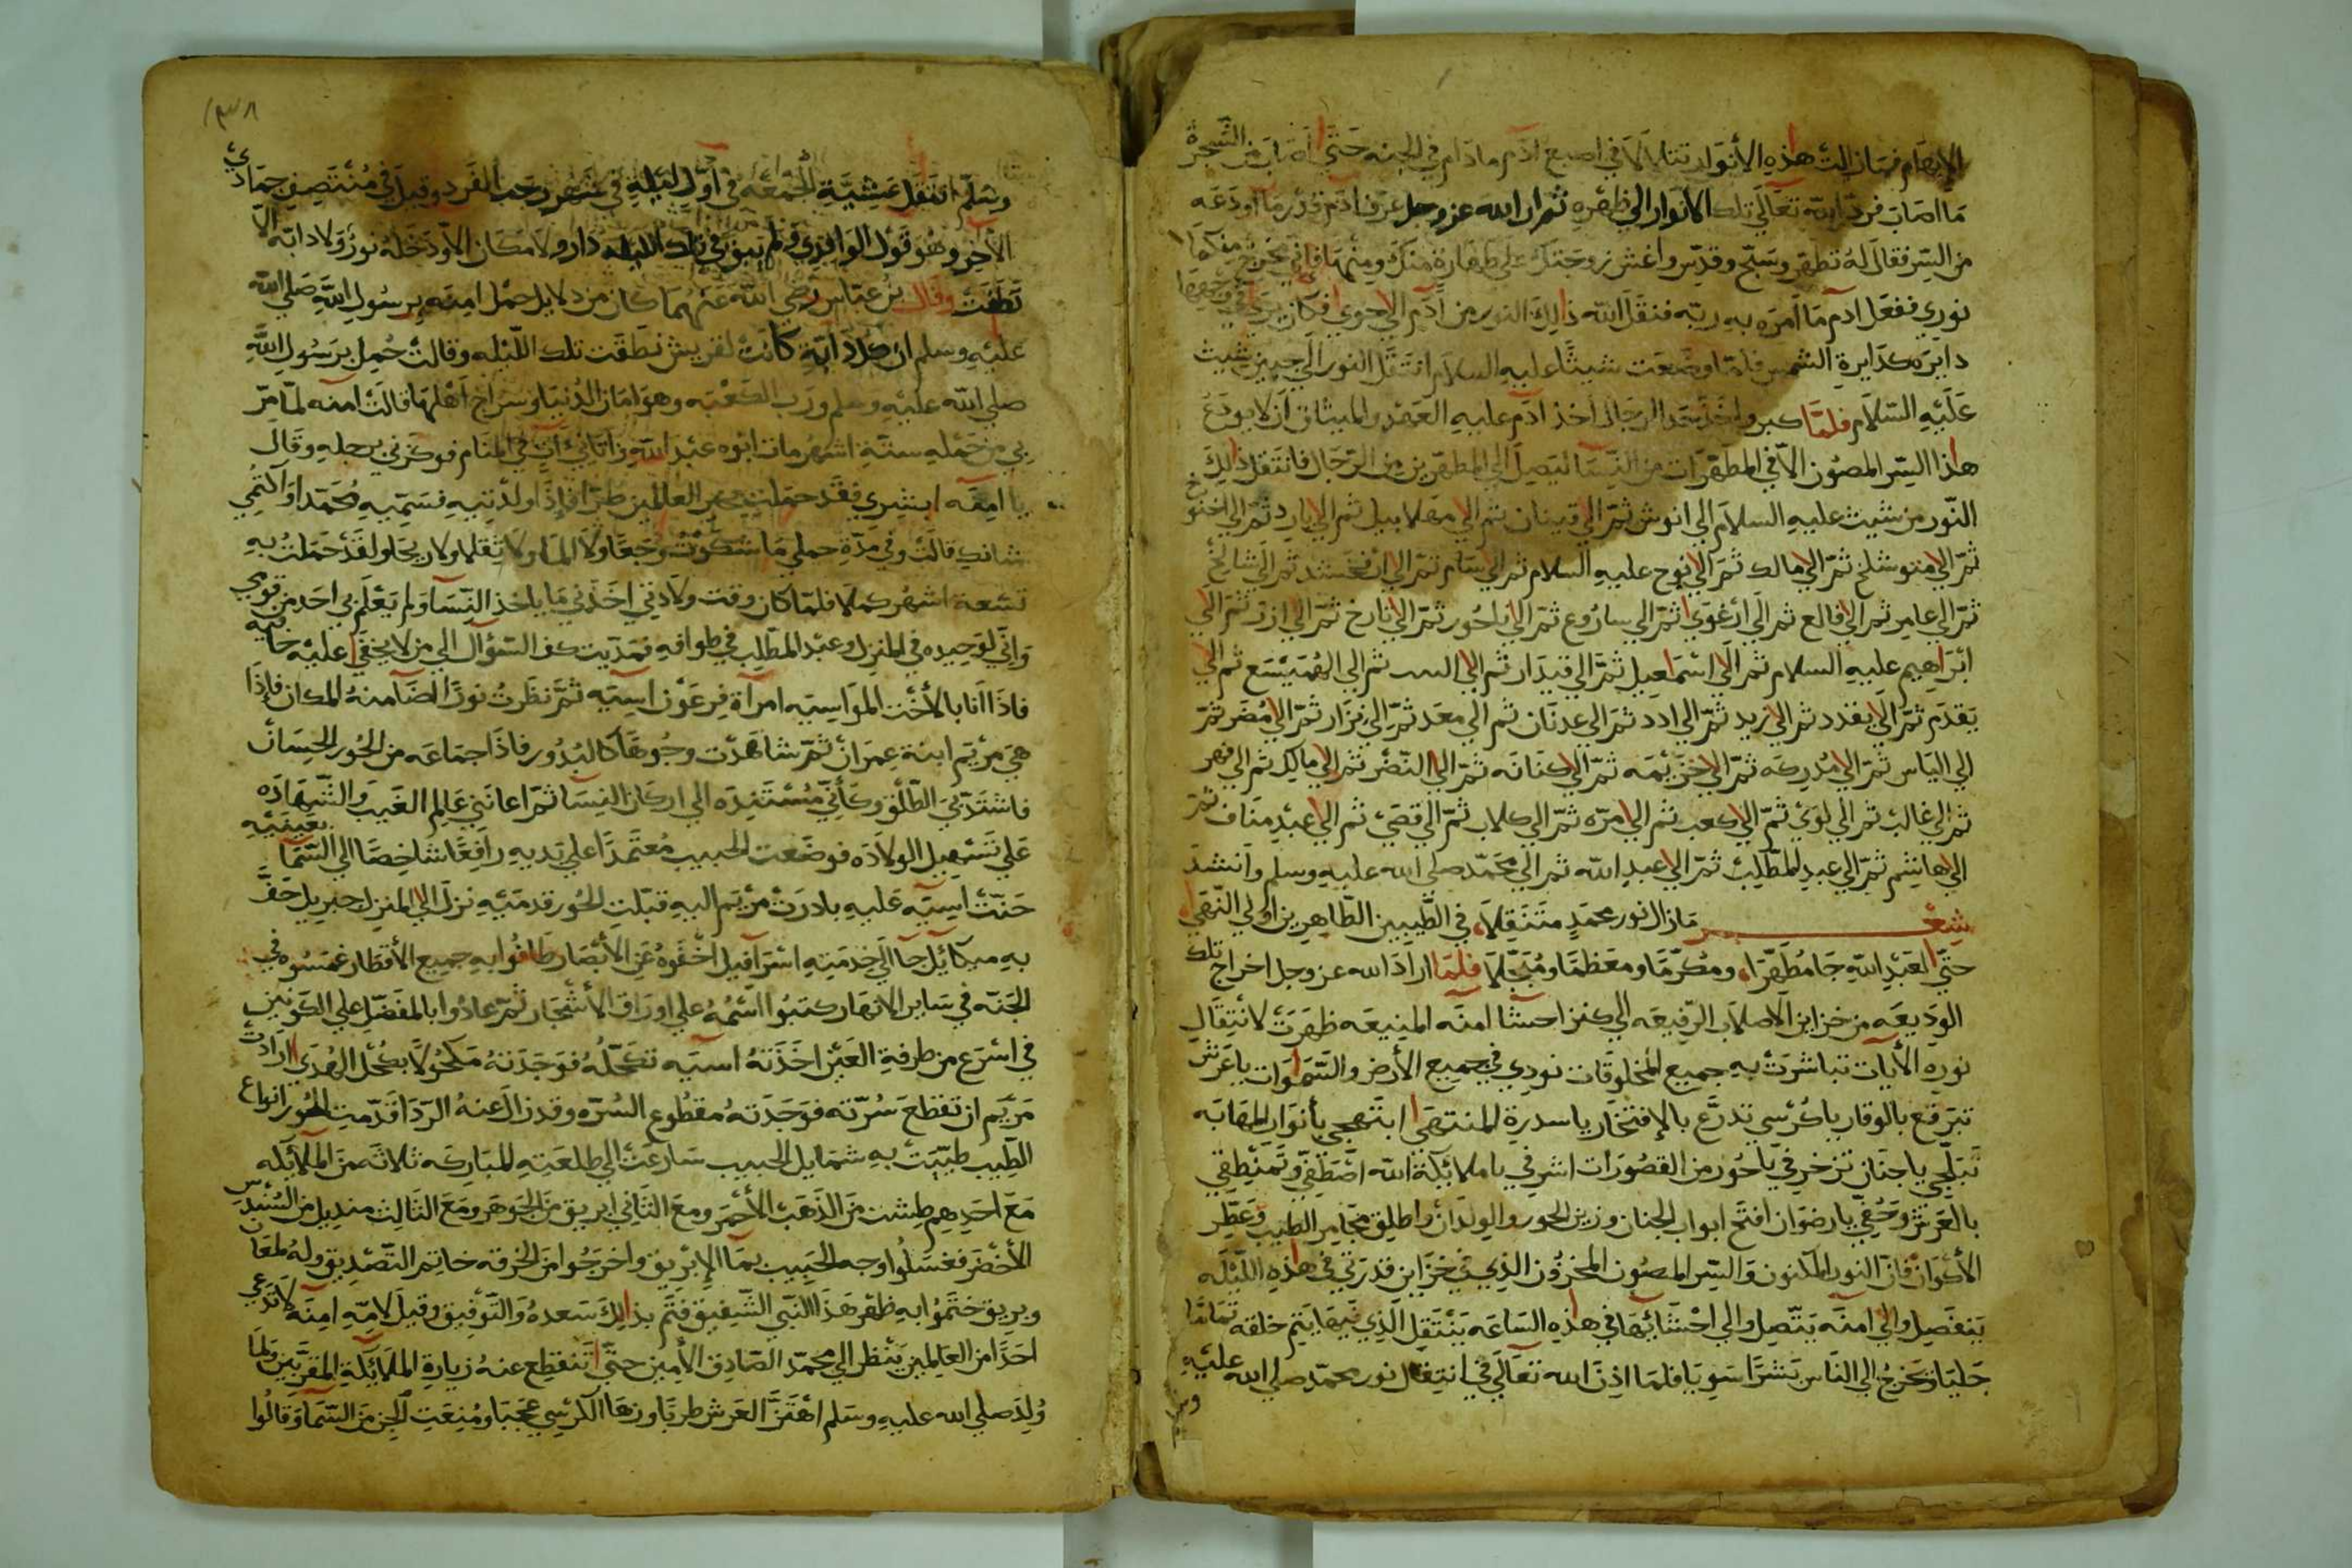 الإبهام فما زالت هذه الأنوار تتلالا في اصبع ادم مادام في الجنه حتي اصاب من الشجرة
ما اصاب فرد الله تعالي تلك الأنوار الي ظهره ثم ان الله عز وجل عرف ادم قدر ما اودعه
من السر فقال له تطهر وسبح وقدس واغش زوجتك علي طهارة منك ومنها فاني مخرج منكما
نوري ففعل ادم ما امره به ربه فنقل الله ذالك النور من ادم الي حوي فكان يري في وجهها
دايره كدايرة الشمس فلما وضعت شيثا عليه السلام انتقل النور الي جبين شيث
عليه السلام فلما كبر واخذ حد الرجال اخذ ادم عليه العهد والميثاق ان لا يودع
هذا السر المصون الا في المطهرات من النسا ليصل الي المطهرين من الرجال فانتقل ذالك
النور من شيث عليه السلام الي انوش ثم الي قينان ثم الي مهلابيل ثم الي يارد ثم الي اخنوخ
ثم الي متوشلخ ثم الي مالك ثم الي نوح عليه السلام ثم الي سام ثم الي ارفخشد ثم الي شالخ
ثم الي عامر ثم الي فالع ثم الي ارغوي ثم الي ساروع ثم الي ناحور ثم الي تارخ ثم الي ازر ثم الي
ابراهيم عليه السلام ثم الي اسمعيل ثم الي قيدار ثم الي ثم الي الهميسع ثم الي
يقدم ثم الي يقدد ثم الي زيد ثم الي ادد ثم الي عدنان ثم الي معد ثم الي نزار ثم الي مضر ثم
الي الياس ثم الي مدركه ثم الي خزيمه ثم الي كنانه ثم الي النضر ثم الي مالك ثم الي فهر
ثم الي غالب ثم الي لوي ثم الي كعب ثم الي مره ثم الي كلاب ثم الي قصي ثم الي عبد مناف ثم
الي هاشم ثم الي عبد المطلب ثم الي عبد الله ثم الي محمد صلي الله عليه وسلم وانشد
شعر ما زال نور محمد متنقلا في الطيبين الطاهرين اولي النهي
حتي لعبد الله جا مطهرا ومكرما ومعظما ومبجلا فلما اراد الله عز وجل اخراج تلك
الوديعه من خزاين الاصلاب الرفيعه الي كنز احشا امنه المنيعه ظهرت لانتقال
نوره الأيات تباشرت به جميع المخلوقات نودي في جميع الأرض والسموات يا عرش
تبرقع بالوقار يا كرسي تدرع بالإفتخار يا سدرة المنتهي ابتهجي بأنوار المهابه
تبلجي يا جنان تزخرفي يا حور من القصورات اشرفي يا ملائكة الله اصطفي وتمنطقي
بالعرش وحفي يا رضوان افتح ابواب الجنان وزين الحور والولدان واطلق مجامر الطيب وعطر
الأكوان فان النور المكنون والسر المصون المخزون الذي في خزاين قدرتي في هذه الليلة
ينفصل والي امنه يتصل والي احشائها في هذه الساعه ينتقل الذي فيها يتم خلقه تماما
جليا ويخرج الي الناس بشرا سويا فلما اذن الله تعالي في انتقال نور محمد صلي الله عليه
وسلم
١٣٨
وسلم انتقل عشية الجمعه في اول ليلة في شهر رجب الفرد وقيل في منتصف جمادي
الأخر وهو قول الواقدي ولم تبق في تلك الليله دار ولا مكان الا ودخله نور ولا دابة الا
نطقت وقال بن عباس رضي الله عنهما كان من دلايل حمل امنه برسول الله صلي الله
عليه وسلم ان كل دابة كانت لقريش نطقت تلك الليله وقالت حمل برسول الله
صلي الله عليه وسلم ورب الكعبه وهو امان الدنيا وسراج اهلها قالت امنه لما مر
بي من حمله ستة اشهر مات ابوه عبد الله واتاني ات في المنام فوكزني برجله وقال
يا امنه ابشري فقد حملت بخير العالمين طرا فإذا ولدتيه فسميه محمدا واكتمي
شانك قالت وفي مدة حملي ما شكوت وجعا ولا الما ولا ثقلا ولا ريحا ولقد حملت به
تسعة اشهر كملا فلما كان وقت ولادتي اخذني ما ياخذ النسا ولم يعلم بي احد من قومي
واني لوحيده في المنزل وعبد المطلب في طوافه فمديت كف السؤال الي من لا يخفي عليه خافيه
فاذا انا بالأخت المواسيه امراة فرعون اسيه ثم نظرت نورا اضا منه المكان فإذا
هي مريم ابنة عمران ثم شاهدت وجوها كالبدور فاذا جماعه من الحور الحسان
فاشتد بي الطلق وكأني مستنده الي اركان النسا ثم اعانني عالم الغيب والشهاده
علي تسهيل الولاده فوضعت الحبيب معتمدا علي يديه رافعا شاخصا الي السما بعينيه
حنت اسيه عليه بادرت مريم اليه قبلت الحور قدميه نزل الي المنزل جبريل حف
به ميكائيل جا الي خدمته اسرافيل اخفوه عن الأبصار طافوا به جميع الأقطار غمسوه في
الجنه في ساير الانهار كتبوا اسمه علي اوراق الأشجار ثم عادوا بالمفضل علي الكونين
في اسرع من طرفة العين اخذته اسيه تكحله فوجدته مكحولا بكحل الهدي ارادت
مريم ان تقطع سرته فوجدته مقطوع السره وقد زال عنه الردا قدمت الحور انواع
الطيب طيبت به شمايل الحبيب سارعت الي طلعته المباركه ثلاثه من الملائكه
مع احدهم طشت من الذهب الأحمر ومع الثاني ابريق من الجوهر ومع الثالث منديل من السندس
الأخضر فغسلوا وجه الحبيب بما الإبريق واخرجوا من الخرقه خاتم التصديق وله لمعان
وبريق ختموا به ظهر هذا النبي الشفيق فتم بذالك سعده والتوفيق وقيل لامه امنه لا تدعي
احدا من العالمين ينظر الي محمد الصادق الأمين حتي تنقطع عنه زيارة الملائكة المقربين ولما
ولد صلي الله عليه وسلم اهتز العرش طربا وزها الكرسي عجبا ومنعت الجن من السما وقالوا